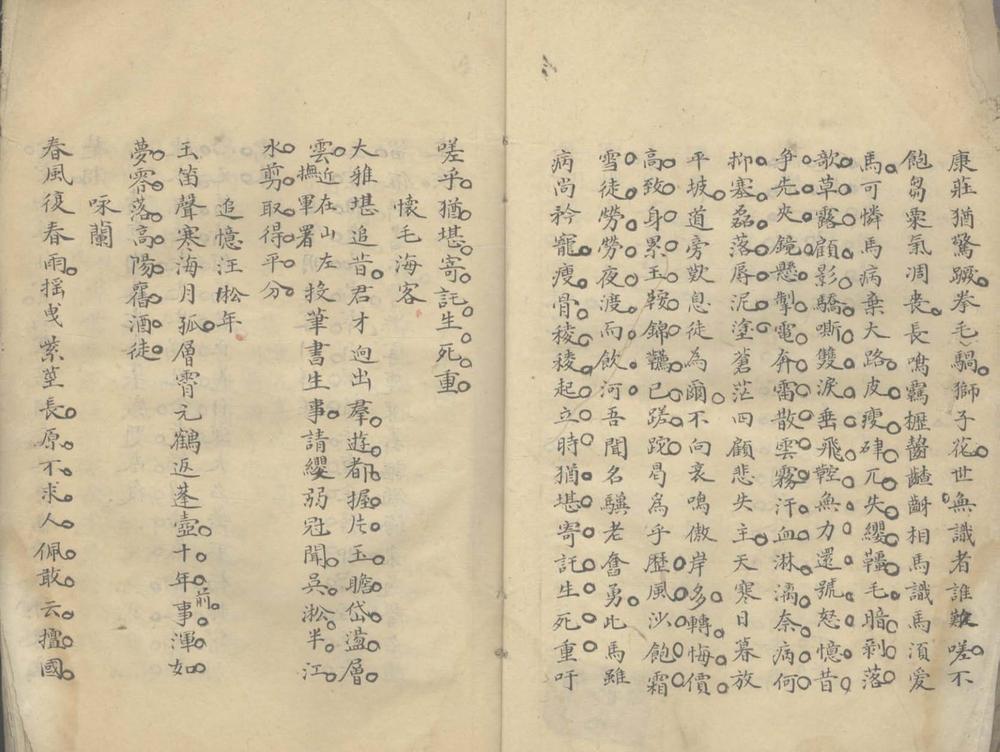 康莊猶驚蹶拳毛騧獅子花世無識者誰歎嗟不
飽芻粟氣凋喪長鳴羈櫪齧齰齝相馬識馬須愛
馬可憐馬病棄大路皮瘦硉兀失纓韁毛暗剝落
歌草露顧影驕嘶雙淚垂飛鞚無力還號怒憶昔
爭先夾鏡懸掣電奔雷散雲霧汗血淋漓奈病何
抑塞磊落辱泥塗蒼茫四顧悲失主天寒日暮放
平坡道旁歎息徒為爾不向哀鳴傲岸多轉悔價
高致身累玉鞍錦韉已蹉跎曷為乎歷風沙飽霜
雪徒勞勞夜渡而飲河吾聞名驥老奮勇此馬雖
病尚矜寵瘦骨稜稜起立時猶堪寄託生死重吁
嗟乎猶堪寄託生死重
懷毛海客
大雅堪追昔君才迥出羣遊都握片玉瞻岱盪層
雲近在山左撫軍署投筆書生事請纓弱冠聞吳淞半江
水剪取得平分
追憶汪淞年
玉笛聲寒海月孤層霄元鶴返蓬壺十年前事渾如
夢零落高陽舊酒徒
咏蘭
春風復春雨搖曳紫莖長原不求人佩敢云擅國